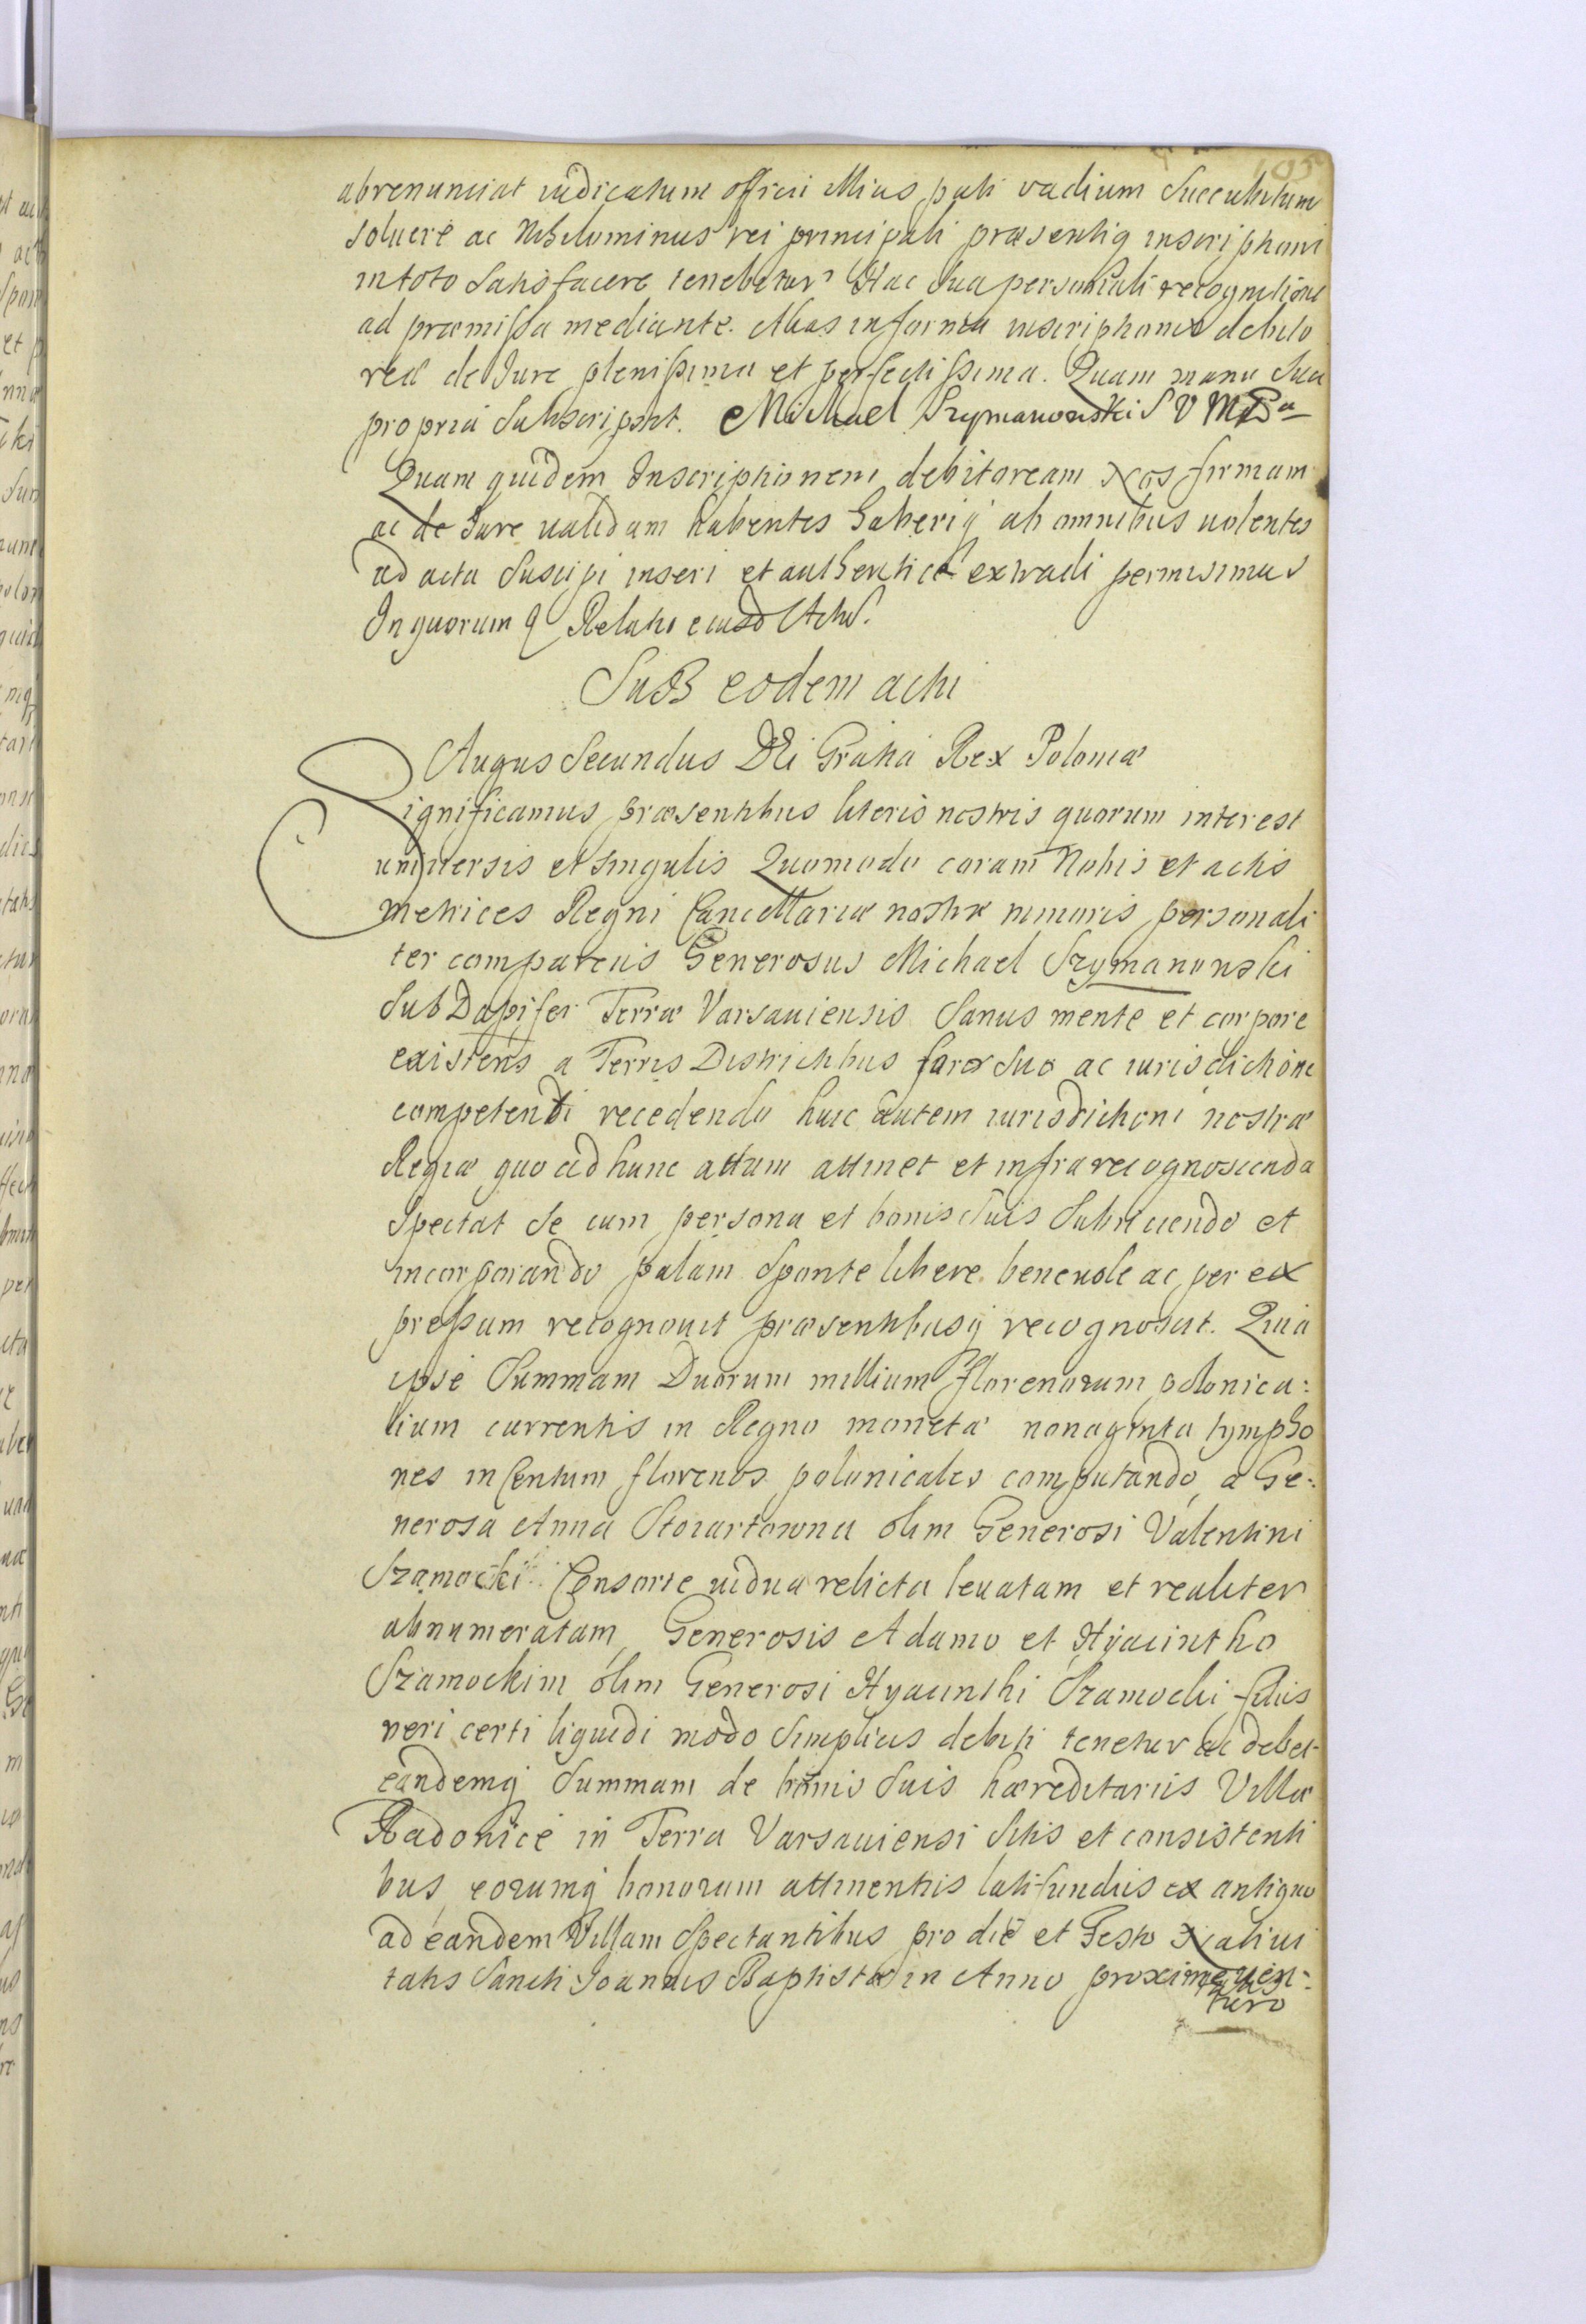 105
abrenunciat iudicatum officii illius pati vadium succubitum
soluere ac nihilominus rei principali præsentiq inscriptioni
in toto satisfacere tenebitur Hac sua personali recognitione
ad præmissa mediante. Alias in forma inscriptionis debito
rea de Jure plenissima et perfectissima. Quam manu sua
propria subscripsit. Michael Szymanowski S V mp
Quam quidem Inscriptionem debitoream Nos firmam
ac de Jure ualidam habentes haberiq ab omnibus uolentes
ad acta suscipi inseri et authentice extradi permisimus
In quorum q Relatio eiusd Actus.
SuB eodem actu
Augus Secundus DEi Gratia Rex Poloniæ
Significamus præsentibus literis nostris quorum interest
uniuersis et singulis Quomodo coram Nobis et actis
metrices Regni Cancellariæ nostræ minoris personali
ter comparens Generosus Michael Szymanowski
SubDapifer Terræ Varsauiensis Sanus mente et corpore
existens a Terris Districtibus foro suo ac iurisdictione
competenti recedendo huic autem iurisdictioni nostræ
Regiæ quo ad hunc attum attinet et infra recognoscenda
spectat se cum persona et bonis suis subiiciendo et
incorporando palam sponte libere beneuole ac per ex
pressum recognouit præsentibusq recognoscit. Quia
ipse Summam Duorum millium florenorum polonica:
lium currentis in Regno monetæ nonaginta tympho
nes in Centum florenos polonicales computando, a Ge:
nerosa Anna Stoiartowna olim Generosi Valentini
Szamocki Consorte uidua relicta leuatam et realiter
abnumeratam, Generosis Adamo et Hyacintho
Szamockim olim Generosi Hyacinthi Szamocki filiis
ueri certi liquidi modo simplicis debiti tenetur ac debet
eandemq summam de bonis suis hæreditariis Villæ
Radonice in Terra Varsauiensi sitis et consistenti
bus, eorumq bonorum attinentiis latifundiis ex antiquo
ad eandem Villam spectantibus pro die et Festo Natiui
tatis Sancti Joannis Baptistæ in Anno proxime uen:
turo